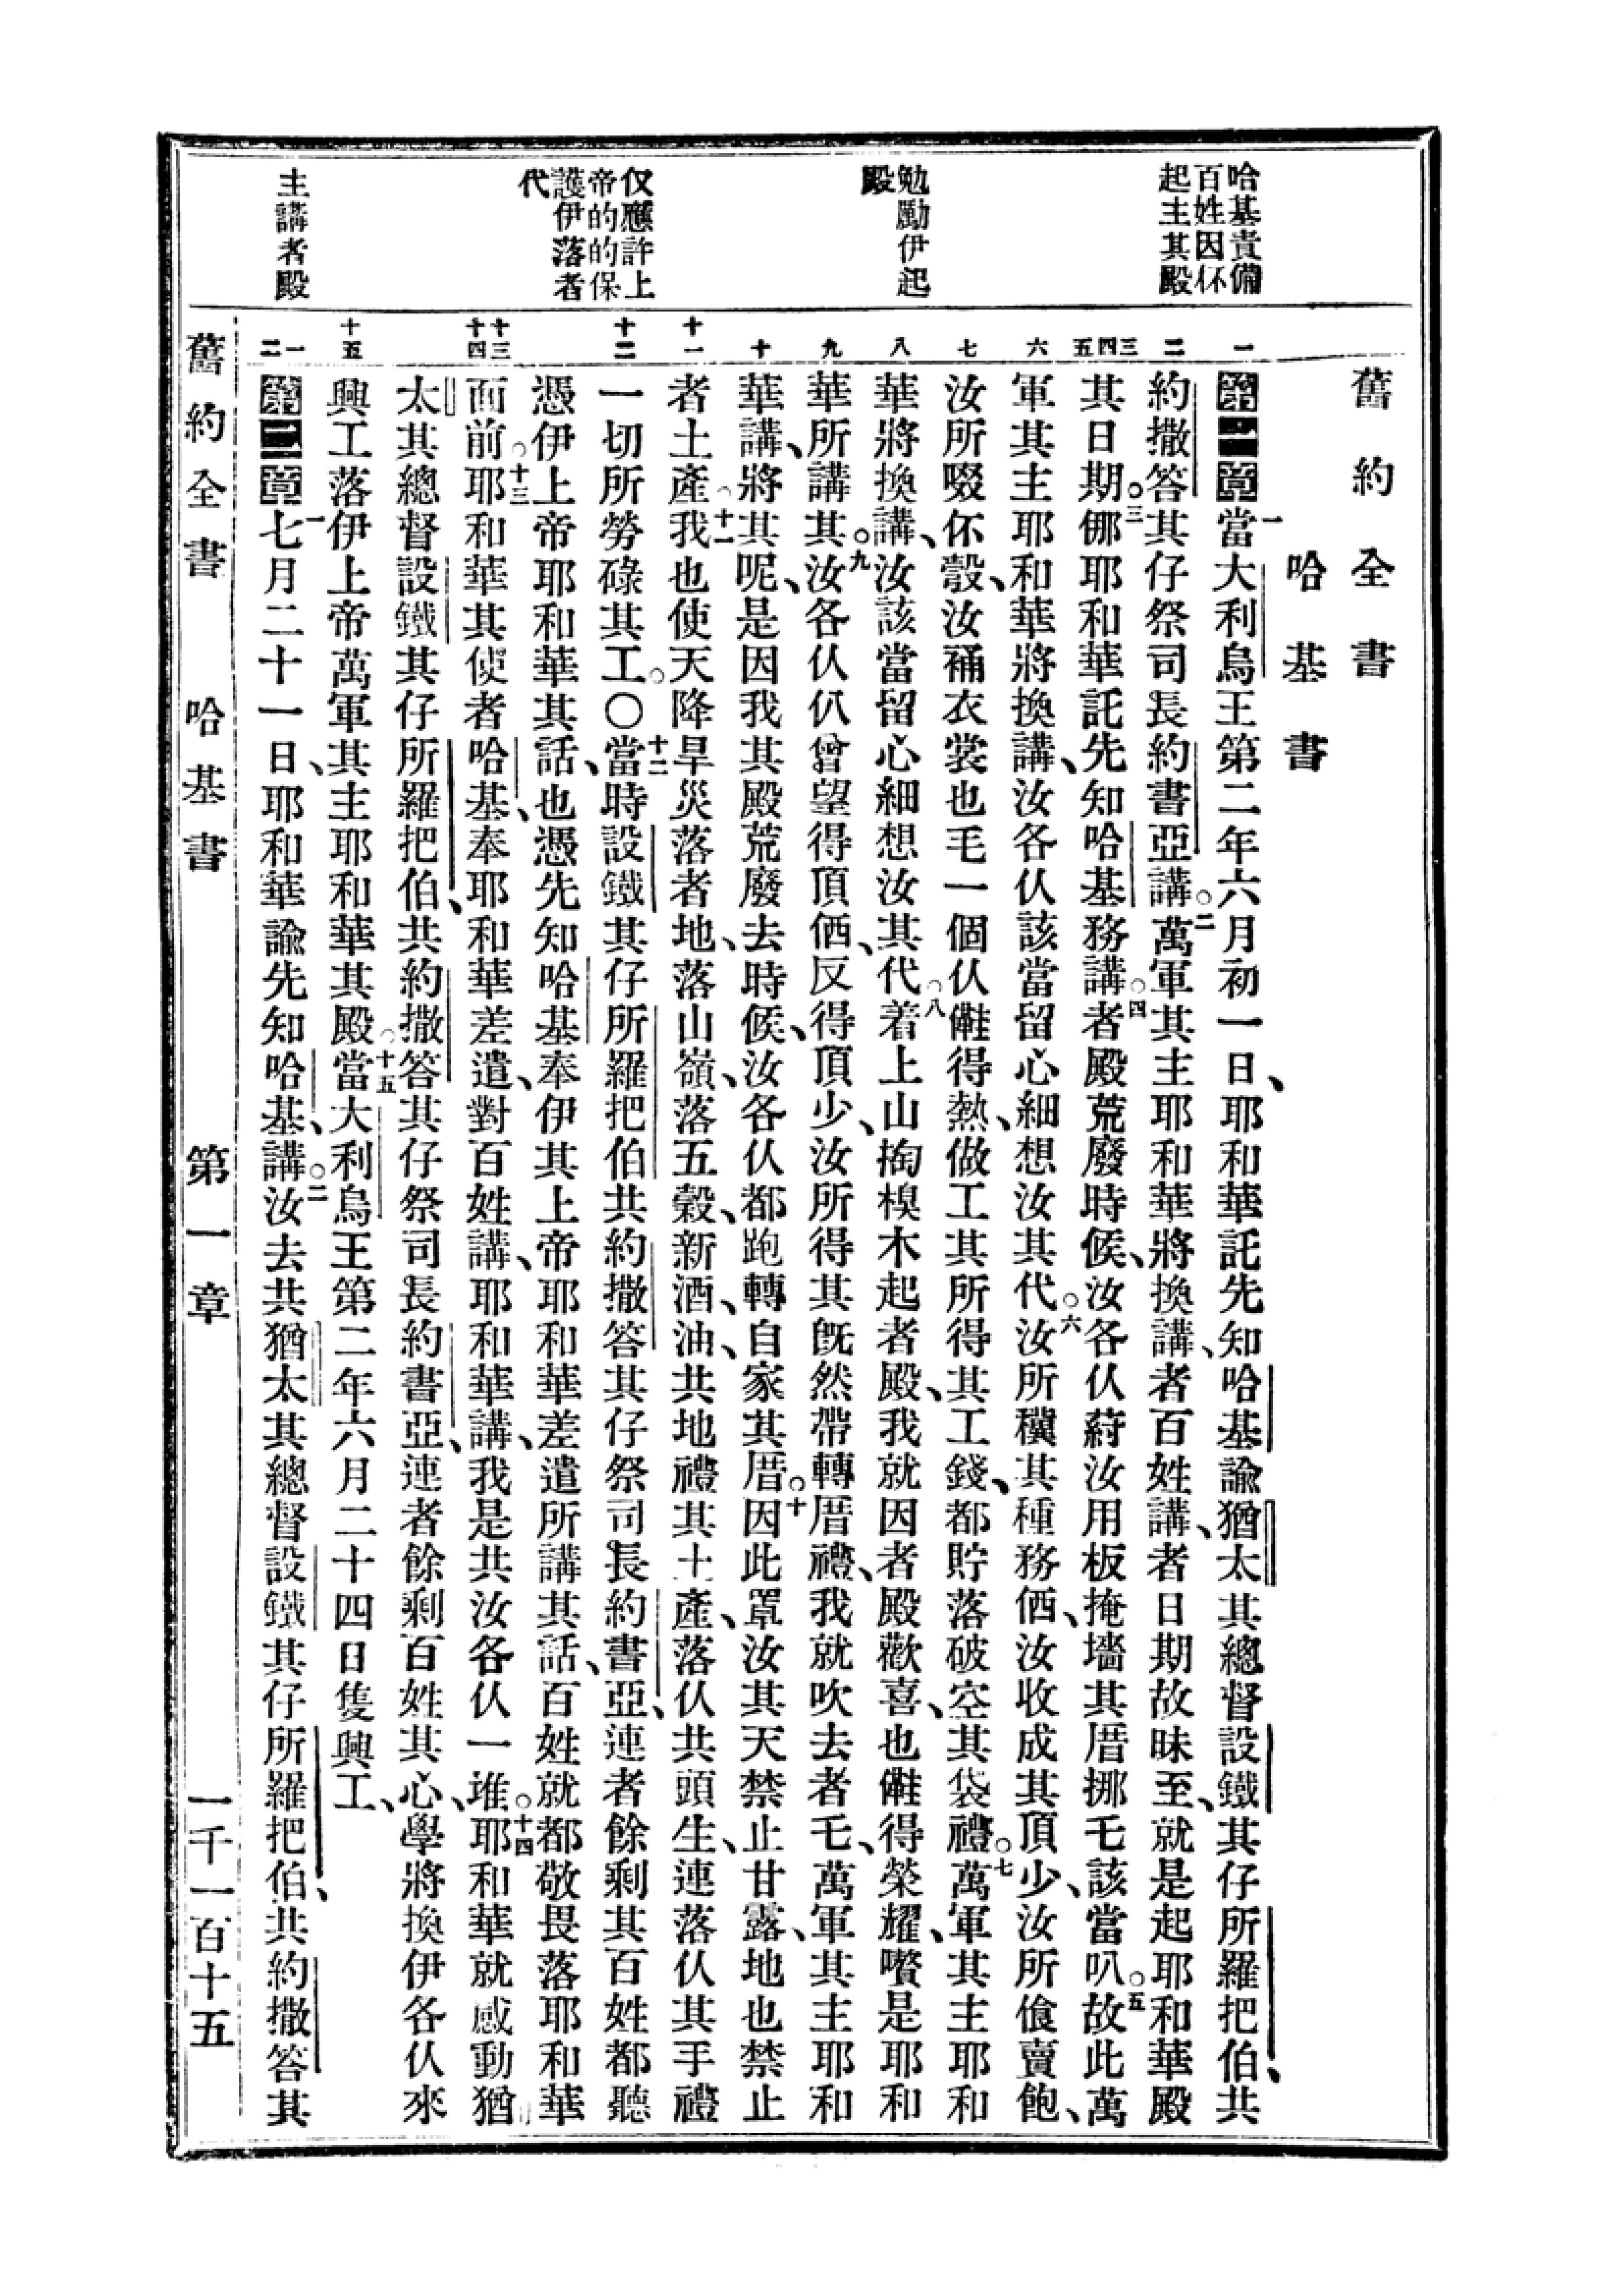 舊約全書
哈基書
哈基責備
百姓因伓
起主其殿
勉勵伊起
殿
仅應許上
帝的的保
護伊落者
代
主講者殿
一
二
三
四
五
六
七
八
九
十
十一
十二
十三
十四
十五
一
二
第一章 一當大利烏王第二年六月初一日、耶和華託先知哈基諭猶太其總督設鐵其仔所羅把伯、共
約撒答其仔祭司長約書亞講。二萬軍其主耶和華將換講、者百姓講、者日期故昧至、就是起耶和華殿
其日期。三㑚耶和華託先知哈基務講。四者殿荒廢時候、汝各仈蔚汝用板掩墻其厝挪乇該當叭。五故此萬
軍其主耶和華將換講、汝各仈該當留心細想汝其代。六汝所穬其種務価、汝收成其頂少、汝所飡賣飽、
汝所啜伓彀、汝䘄衣裳也毛一個仈㒬得熱、做工其所得其工錢、都貯落破空其袋禮。七萬軍其主耶和
華將換講、汝該當留心細想汝其代。八着上山掏槺木起者殿、我就因者殿歡喜、也㒬得榮耀、囋是耶和
華所講其。九汝各仈仈曾望得頂価、反得頂少、汝所得其旣然帶轉厝禮、我就吹去者乇、萬軍其主耶和
華講、將其呢、是因我其殿荒廢去時候、汝各仈都跑轉自家其厝。十因此罩汝其天禁止甘露、地也禁止
者土產。十一我也使天降旱災落者地、落山嶺、落五穀、新酒、油、共地禮其土產、落仈共頭生、連落仈其手禮
一切所勞碌其工。〇十二當時設鐵其仔所羅把伯共約撒答其仔祭司長約書亞、連者餘剩其百姓都聽
憑伊上帝耶和華其話、也憑先知哈基奉伊其上帝耶和華差遣所講其話、百姓就都敬畏落耶和華
面前。十三耶和華其使者哈基、奉耶和華差遣、對百姓講、耶和華講、我是共汝各仈一堆。十四耶和華就感動猶
太其總督設鐵其仔所羅把伯、共約撒答其仔祭司長約書亞、連者餘剩百姓其心、學將換伊各仈來
興工落伊上帝萬軍其主耶和華其殿。十五當大利烏王第二年六月二十四日隻興工、
第二章 一七月二十一日、耶和華諭先知哈基、講。二汝去共猶太其總督設鐵其仔所羅把伯、共約撒答其
舊約全書 哈基書 第一章 一千一百十五